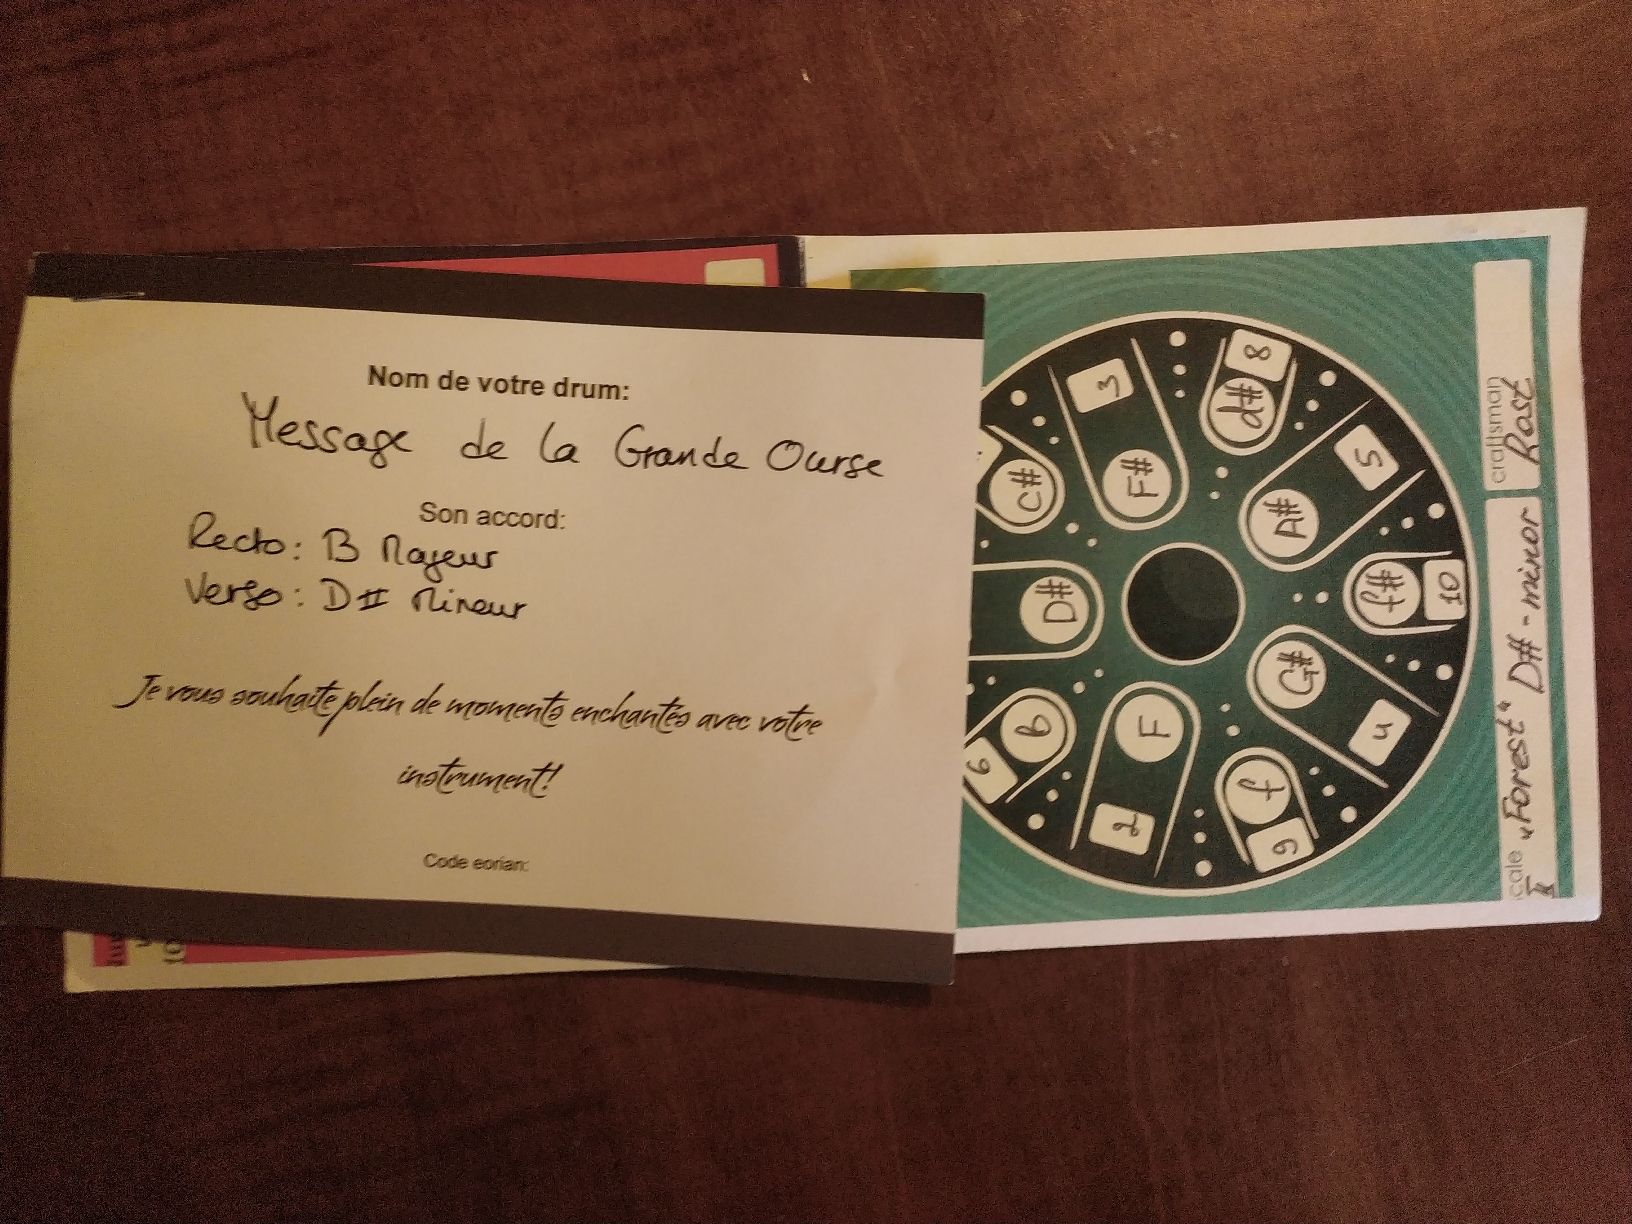 Nom de votre drum:
Message de la Grande Ourse
Son accord:
Recto: B Majeur
Verso: D# Mineur
Je vous souhaite plein de moments enchantés avec votre
instrument!
Code eorian:
3
F#
8
d#
5
A#
10
f#
4
G#
9
f
2
F
6
b
D#
c#
craftsman
Rast
cale „Forest“ D# - minor